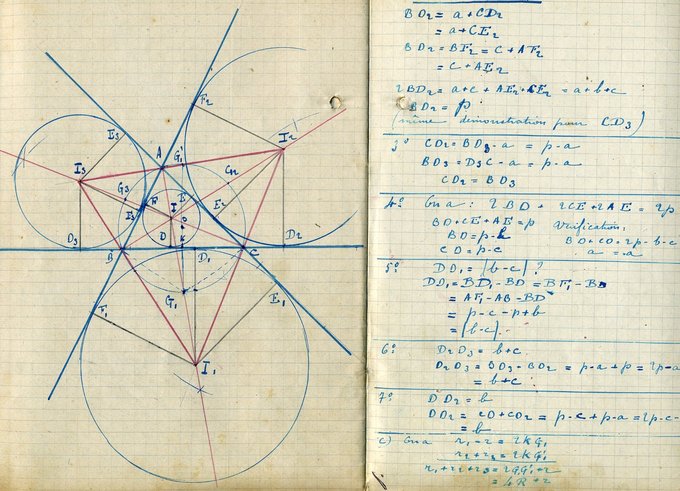 F2
E3
A
G'1
I2
I3
G2
G3
F
E
E2
F3
I
D3
B
D
D1
C
D2
G1
E1
F1
I1
BD2 = a + CD2
= a + CE2
BD2 = BF2 = C + AF2
= C + AE2
2BD2 = a+c + AE2 + CE2 = a+b+c
BD2 = p
(même démonstration pour CD3)
3° CD2 = BD2 - a = p - a
BD3 = D3C - a = p - a
CD2 = BD3
4° On a : 2BD + 2CE + 2AE = 2p
BD + CE + AE = p Vérification;
BD = p - b BD + CD = 2p - b - c
CD = p - c a = a
5° DD1 = |b-c| ?
DD1 = BD1 - BD = BF1 - BD
= AF1 - AB - BD
= p - c - p + b
= |b-c|
6° D2D3 = b + c.
D2D3 = BD3 + BD2 = p - a + p = 2p - a
= b + c
7° DD2 = b
DD2 = CD + CD2 = p - c + p - a = 2p - c -
= b
c) On a r1 - r = 2KG1
r2 + r3 = 2KG'1
r1 + r2 + r3 = 2G1G'1 + r
= 4R + r